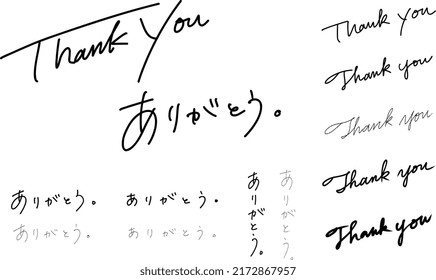 Thank You
ありがとう。
Thank You
Thank you
Thank you
Thank you
Thank you
ありがとう。
ありがとう。
ありがとう。
ありがとう。
ありがとう。
ありがとう。
shutterstock.com · 2172867957